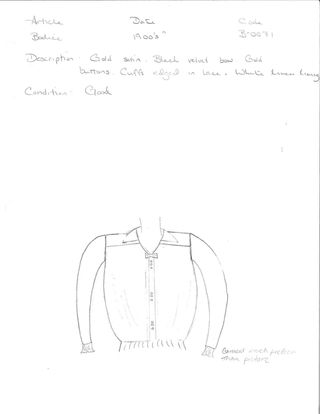 Article Date Code
Bodice 1900's" B:0071
Description: Gold satin. Black velvet bow. Gold
buttons. Cuffs edged in lace. White linen lining
Condition: Good
Garment much prettier
than picture